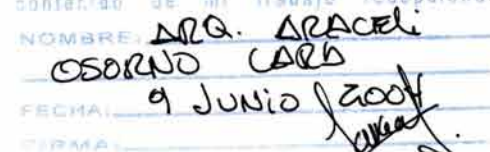 contenido de mi trabajo recepcional
NOMBRE: ARQ. ARACELi
OSORNO LARA
FECHA: 9 JUNiO 2004
FIRMA: